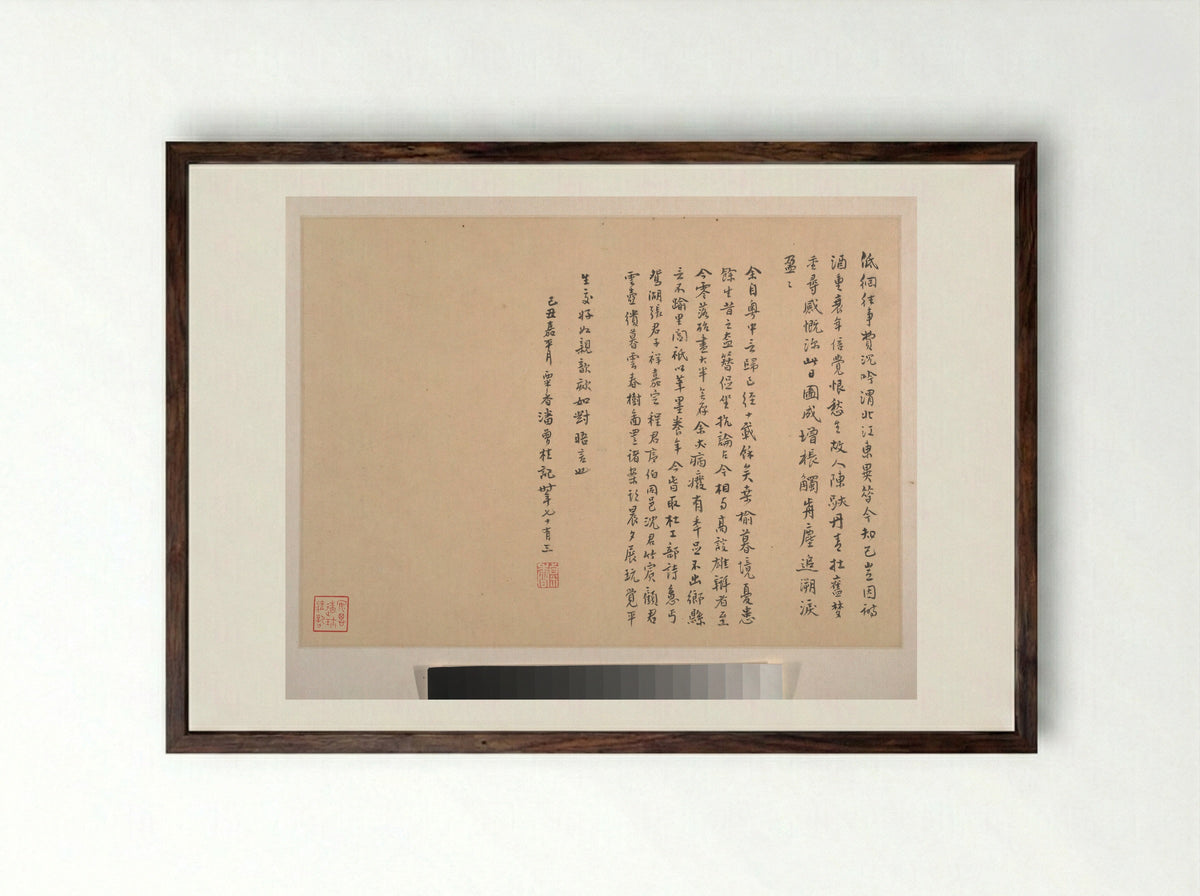 低徊往事費沉吟渭北江東異等今知己豈因詩
酒重衰年倍覺恨愁生故人陳跡丹青在舊夢
重尋感慨深此日圖成增悵觸前塵追溯淚
盈〻
余自粵中言歸已經十載餘矣桑榆暮境憂患
餘生昔之盍簪促坐抗論古今相与高談雄辯者至
今零落殆盡大半無存余大病癈有年足不出鄉縣
言不踰里閭祇以筆墨養年今皆取杜工部詩意丐
鴛湖張君子祥嘉定程君序伯同邑沈君竹賓顧君
雲壺繢暮雲春樹圖置諸案頭晨夕展玩覺平
生交好如親謦欬如對晤言也
己丑嘉平月 潘曾桂記時年七十有三